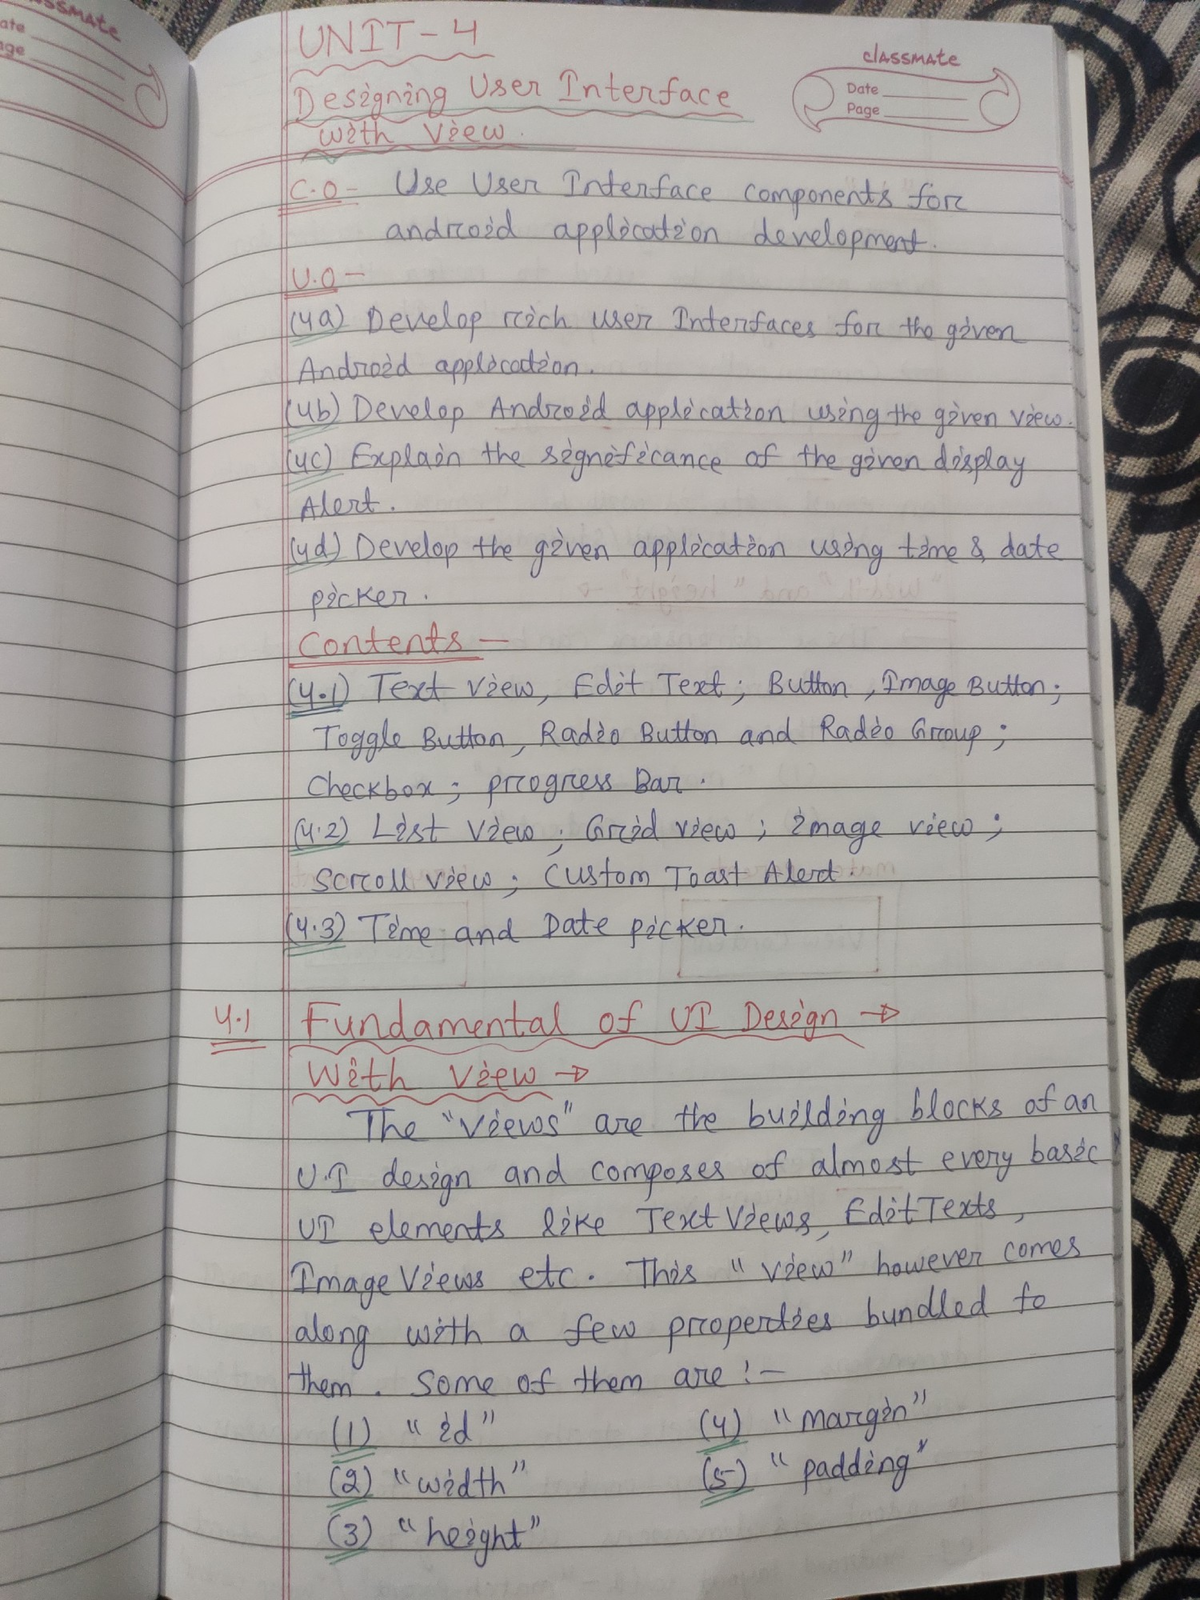 UNIT-4
Designing User Interface
With View.
classmate
Date
Page
assmate
ate
age
C.O - Use User Interface components for
android application development.
U.O -
(4a) Develop rich user Interfaces for the given
Android application.
(4b) Develop Android application using the given view.
(4c) Explain the significance of the given display
Alert.
(4d) Develop the given application using time & date
picker.
Contents -
(4.1) Text View, Edit Text; Button, Image Button;
Toggle Button, Radio Button and Radio Group;
Checkbox; progress Bar.
(4.2) List View; Grid view; image view;
Scroll view; Custom Toast Alert.
(4.3) Time and Date picker.
4.1 Fundamental of UI Design →
With View →
The "views" are the building blocks of an
U.I design and composes of almost every basic
UI elements like TextViews, EditTexts,
ImageViews etc. This "view" however comes
along with a few properties bundled to
them. Some of them are :-
(1) "id" (4) "margin"
(2) "width" (5) "padding"
(3) "height"